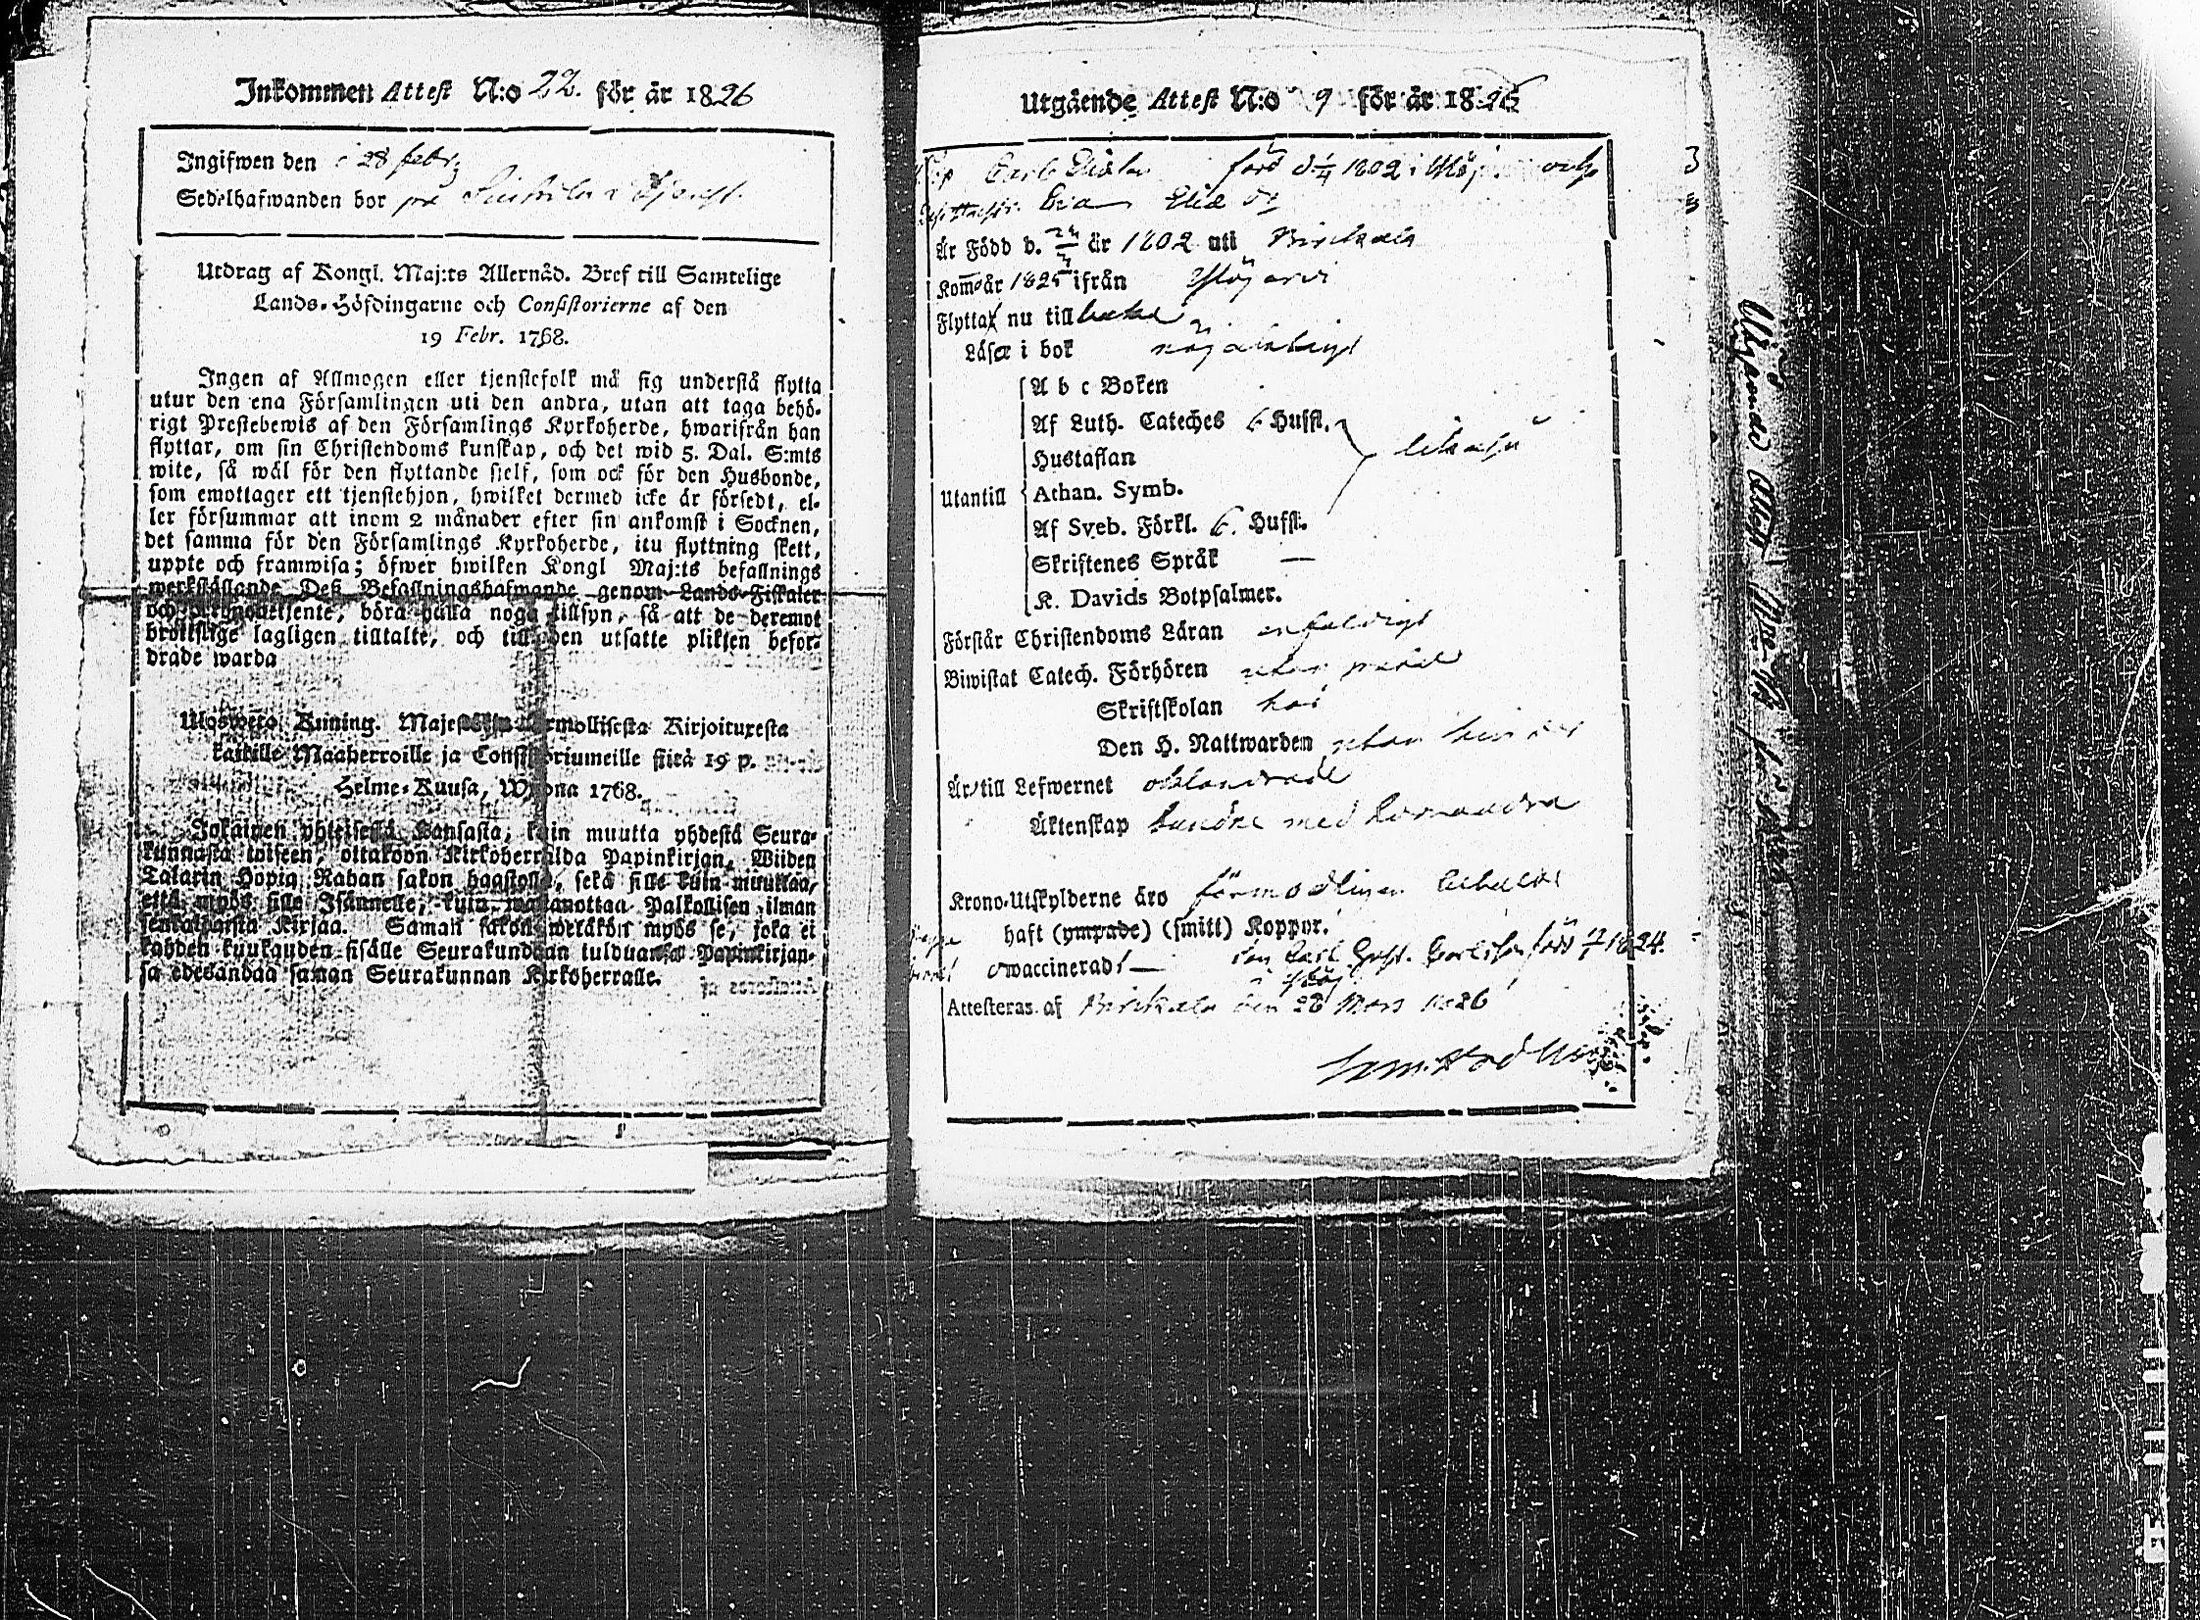 Inkommen Attest N:o 22. för år 1826
Ingifwen den 28 febr
Sedelhafwanden bor
Utdrag af Kongl. Maj:ts Allernåd. Bref till Samtelige
Lands-Höfdingarne och Consistorierne af den
19 Febr. 1768.
Ingen af Allmogen eller tjenstefolk må sig understå flytta
utur den ena Församlingen uti den andra, utan att taga behö-
rigt Prestebewis af den Församlings Kyrkoherde, hwarifrån han
flyttar, om sin Christendoms kunskap, och det wid 5. Dal. S:mts
wite, så wäl för den flyttande sielf, som ock för den Husbonde,
som emottager ett tjenstehjon, hwilket dermed icke är försedt, el-
ler försummar att inom 2 månader efter sin ankomst i Socknen,
det samma för den Församlings Kyrkoherde, itu flyttning skett,
uppte och framwisa; öfwer hwilken Kongl Maj:ts befallnings
werkställande Deß Befallningshafwande genom Lands-Fiskaler
och böra hålla noga tillsyn, så att de deremot
brottslige lagligen tilltalte, och till den utsatte plikten befor-
drade warda
Ulosweto Kuning. Majest Armollisesta Kirjoituxesta
kaikille Maaherroille ja Consistoriumeille siitä 19 p.
Helme-Kuusa, Wuonna 1768.
Jokainen yhteisestä Kansasta, kuin muutta yhdestä Seura-
kunnasta toiseen, ottakoon Kirkoherralda Papinkirjan, Wiiden
Talarin Hopia Rahan sakon haastolla, sekä sille kuin muuttaa,
että myös sille Isännelle, kuin wastanottaa Palkollisen ilman
senkaltaista Kirjaa. Saman sakon wetäkön myös se, joka ei
kahden kuukauden sisälle Seurakundaan tulduansa Papinkirjan-
sa edesandaa saman Seurakunnan Kirkoherralle.
Utgående Attest N:o 9 för år 1826
Carl född d. 1/4 1802 i
Eva
Är Född d. 24/7 år 1802 uti Birckala
Kom år 1825 ifrån Ylöjervi
Flytta nu tillbaka
Läsa i bok nöjaktligt
A b c Boken
Af Luth. Cateches 6 Hufst.
Hustaflan likaså
Utantill Athan. Symb.
Af Sveb. Förkl. 6. Hufst.
Skriftenes Språk —
K. Davids Botpsalmer.
Förstår Christendoms Läran enfaldigt
Biwistat Catech. Förhören
Skriftskolan
Den H. Nattwarden utan hinder
Är till Lefwernet oklandrade
Äktenskap bundne med hvarandra
Krono-Utskylderne äro förmodligen betalde
haft (ympade) (smitt) Koppor.
waccinerad — son Carl Gust. född 1824.
Attesteras af Birckala den 28 Mars 1826
Utgående Attest